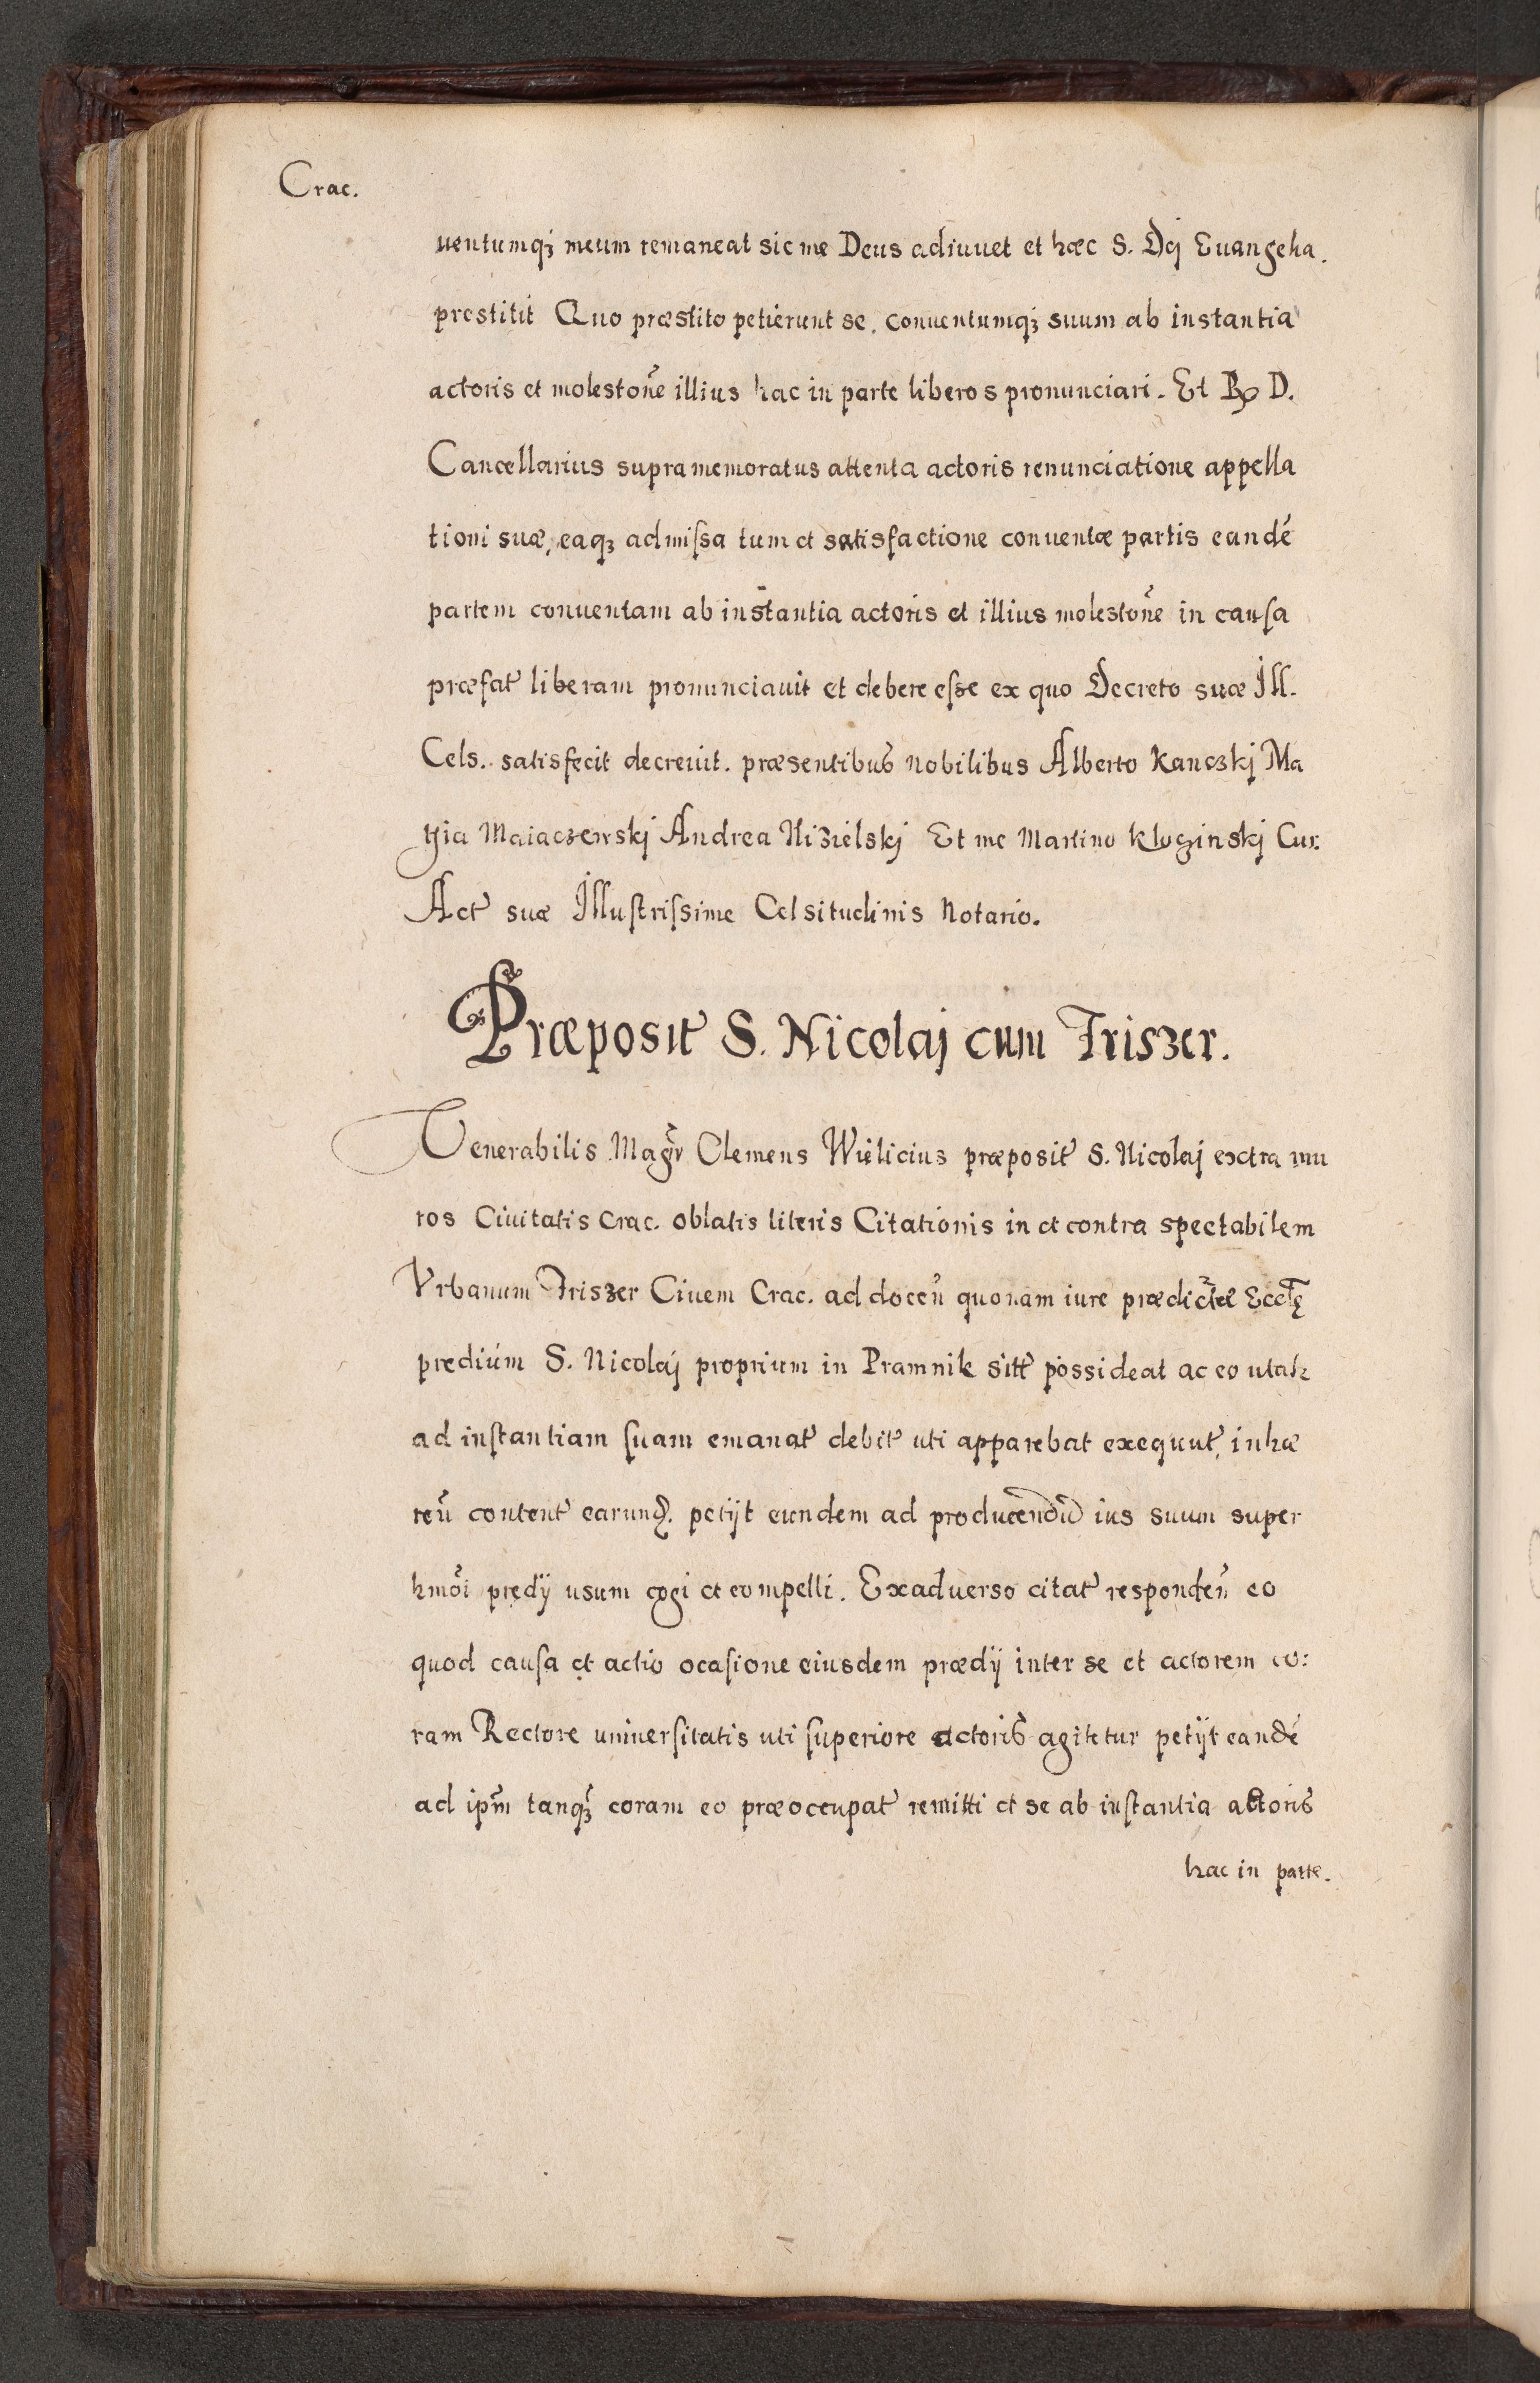 Crac.
uentumqꝫ meum remaneat sic me Deus adiuuet et hæc S. Dej Euangelia.
prestitit Quo præstito petierunt se, conuentumqꝫ suum ab instantia
actoris et molestoñe illius hac in parte liberos pronunciari. Et D.
Cancellarius supramemoratus attenta actoris renunciatione appella
tioni suæ, eaqꝫ admiſsa tum et satisfactione conuentæ partis eandē
partem conuentam ab instantia actoris et illius molestoñe in cauſa
præfat̛ liberam pronunciauit et debere eſse ex quo Decreto suæ Ill.
Cels. satisfecit decreuit. præsentibus nobilibus Alberto Kanczkj Ma
thia Maiaczewskj Andrea Nizielskj Et me Martino Kłoginskj Cur.
Act̛ suæ Illuſtriſsime Celsitudinis Notario.
Præposit̛ S. Nicolaj cum Friszer.
Venerabilis Magr̃ Clemens Wielicius præposit̛ S. Nicolaj extra mu
ros Ciuitatis Crac. oblatis literis Citationis in et contra spectabilem
Vrbanum Friszer Ciuem Crac. ad doceñ quonam iure prædictæ Eccł̃ę
predium S. Nicolaj proprium in Pramnik sitt̛ possideat ac eo utatꝛ
ad inſtantiam ſuam emanat̛ debit̛ uti apparebat exequut̛, inhæ
reñ content̛ earunꝺ. petijt eundem ad producendũ ius suum super
hmõi prędij usum cogi et compelli. Exaduerso citat̛ respondeñ eo
quod cauſa et actio ocaſione eiusdem prædij inter se et actorem co:
ram Rectore uniuerſitatis uti ſuperiore actoris agitetur petijt eandē
ad ipm̃ tanqꝫ̃ coram eo præoccupat̛ remitti et se ab inſtantia actoris
hac in parte.